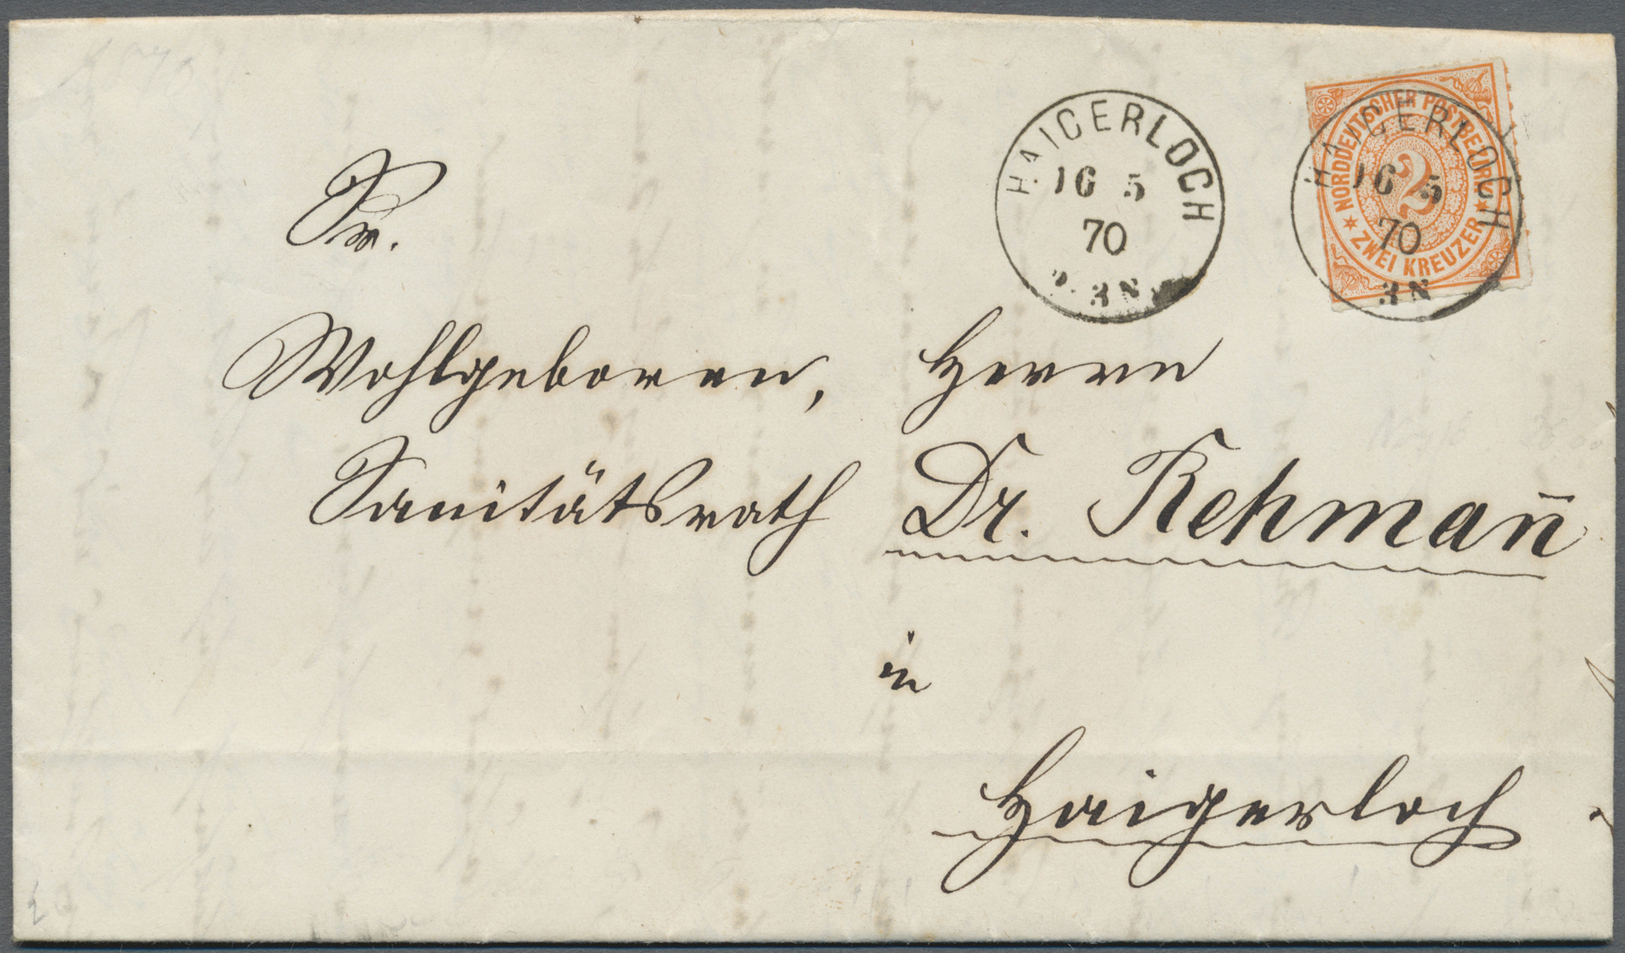 1870
HAIGERLOCH
16 5
70
3N
NORDDEUTSCHER POSTBEZIRK
2
ZWEI KREUZER
HAIGERLOCH
16 5
70
3N
Sr.
Wohlgeboren, Herrn
Sanitätsrath Dr. Rehman̄
in
Haigerloch